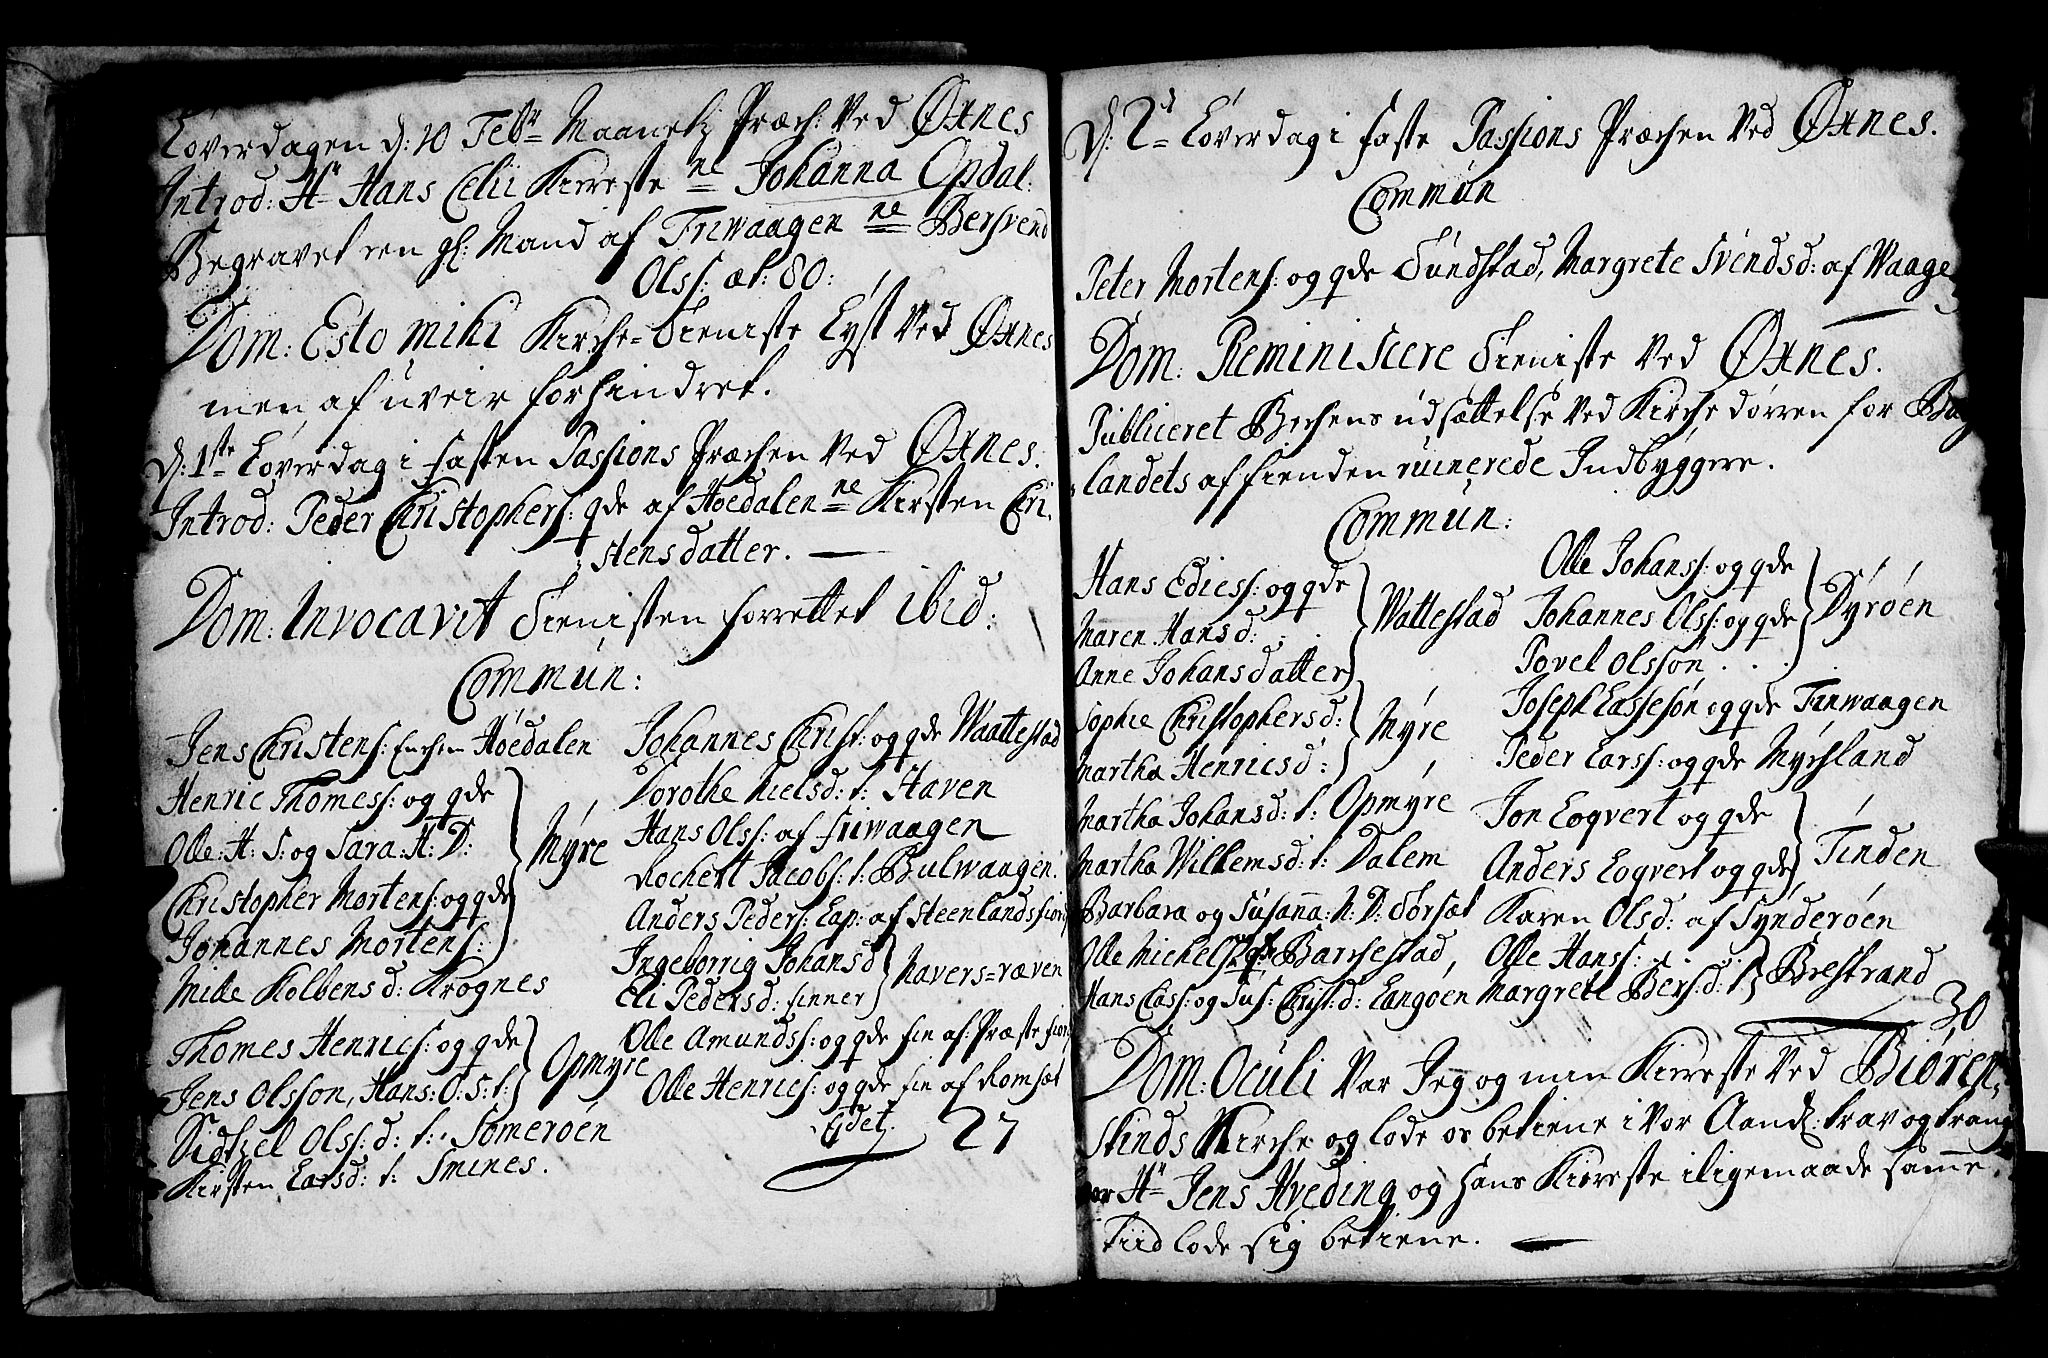 Løverdagen d: 10 Febr Maanetz Præch: Ved Øxnes
Introd: Hr Hans Celii Kiereste ne Johanna Opdal:
Begravet een gl: Mand af Friwaagen ne Bersvend
Olss: æt: 80:
Dom: Esto mihi Kirche-Tieniste Lyst Ved Øxnes
men af uveir forhindret.
d: 1ste Løverdag i fasten Passions Præchen Ved Øxnes.
Introd: Peder Christophers: qde af Höedalen ne Kirsten Chri,
stensdatter.
Dom: Invocavit Tienisten forrettet ibid:
Commun:
Jens Christens: Enchen Höedalen
Henric Thomess: og qde
Olle: H: S: og Sara: H: D:
Christopher Mortens: og qde
Johannes Mortens:
Myre
Mille Kolbensd: Krognes
Thomes Henrics: og qde
Jens Olsson, Hans: O: S: t:
Opmyre
Sidtzel Olss: d: t: Someröen
Kirsten Larsd: t: Smines.
Johannes Christ: og qde Waattestad
Dorothe Nielsd: t: Haven
Hans Olss: af Friwaagen
Rochert Jacobs: t: Bulwaagen.
Anders Peders: Lap: af Steenlandsfiord
Ingeborrig Johansd
Eli Pedersd: finner
Navers=ræven
Olle Amundss: og qde fin af: Præstefiord
Olle Henrics: og qde fin af Romsæt
27
d: 2d Løverdag i faste Passions Præchen Ved Øxnes.
Commun
Peter Mortens: og qde Sundstad, Margrete Svendsd: af Waage
Dom: Reminiscere Tieniste Ved Øxnes.
Publiceret Bechens udsættelse Ved Kirche dørren for
landets af fienden ruinerede Indbyggere.
Commun:
Hans Edicss: og qde
Maren Hansd:
Anne Johansdatter
Wattestad
Sophie Christophersd:
Martha Henricsd:
Myre
Martha Johansd: t: Opmyre
Martha Willemsd: t: Dalem
Barbara og Susanna: N: D: Sorsæt
Olle Michels: og qde Barchestad,
Hans Lass: og Sus: Christ: d: Langöen
Olle Johanss: og qde
Johannes Olss: og qde
Povel Olsson
Dyröen
Joseph Lassesön og qde Tinwaagen
Peder Larss: og qde Myrhsland
Jon Loqvert og qde
Anders Loqvert og qde
Tinden
Karen Olsd: af Synderöen
Olle Hanss:
Margrete Bersd: t
Brestrand
30
Dom: Oculi Var Jeg og min Kiereste Ved Biören,
skinds Kirche og lode os betiene i Vor Aandl: trav og trang
Hr Jens Hveding og hans Kiereste iligemaade samme
Tiid lode sig betiene.